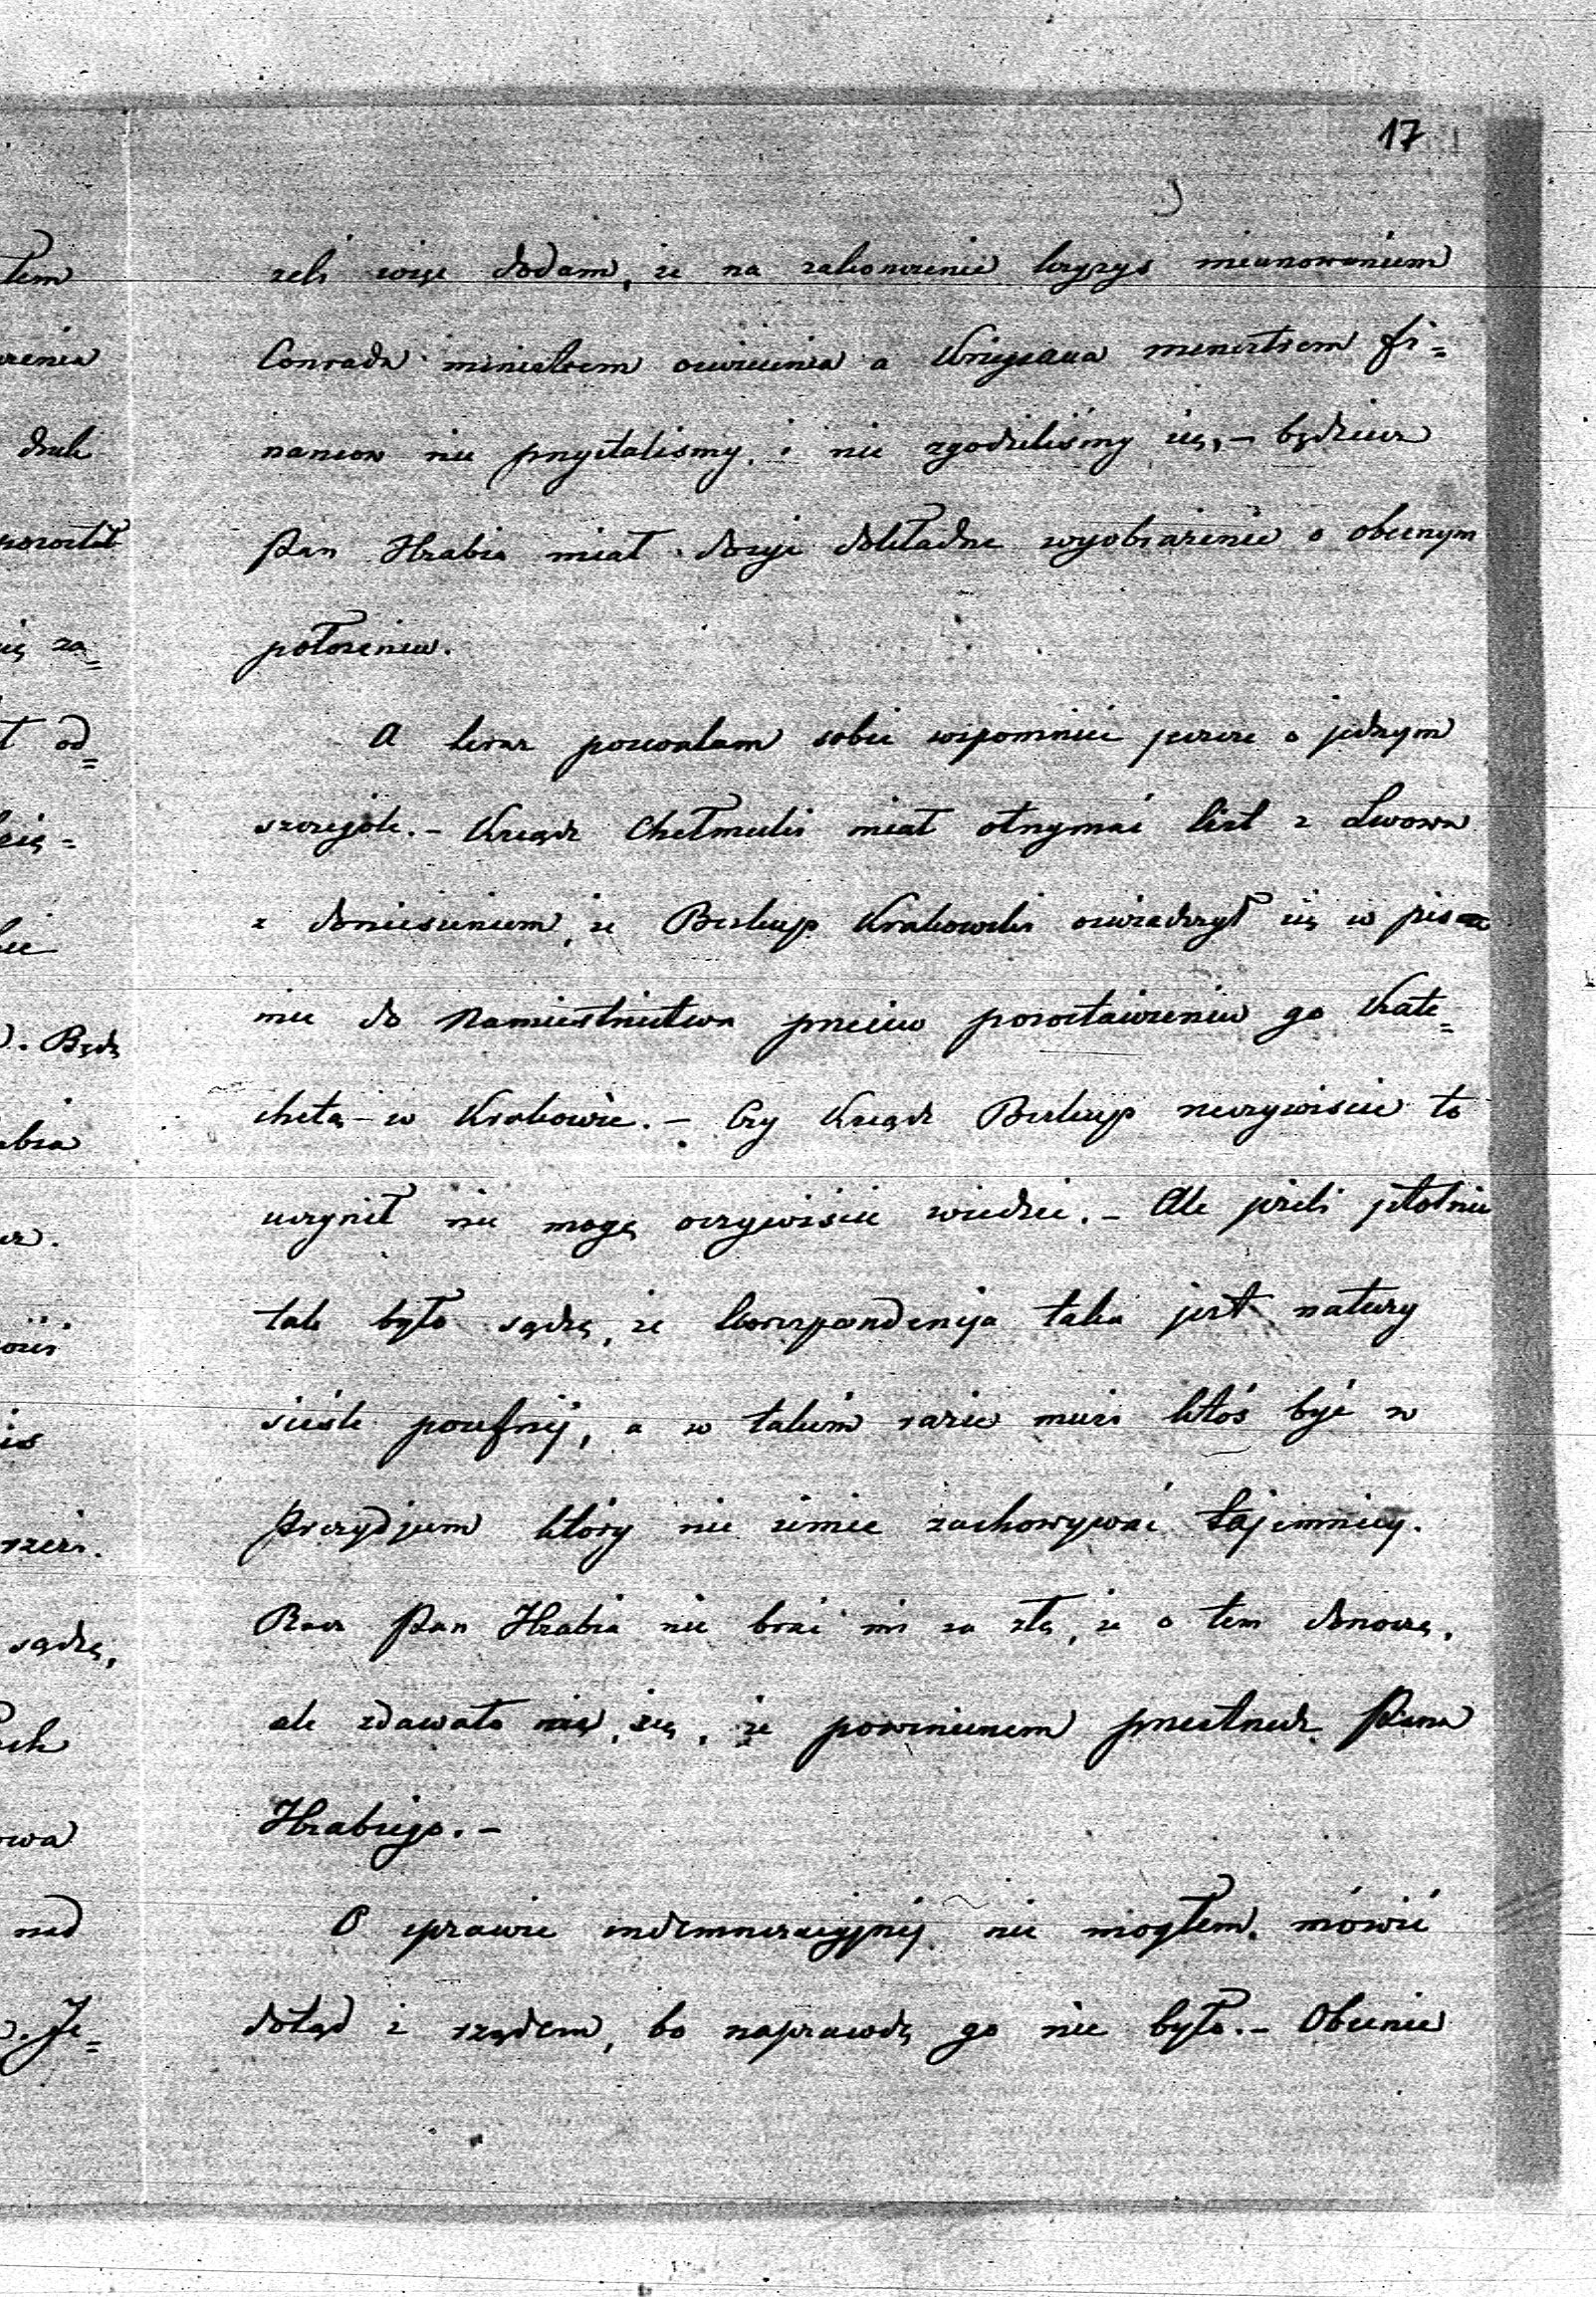 17
żeli więc dodam, że na zakończenie kryzys mianowaniem
Conrada ministrem oświecenia a Kriegsaua ministrem fi=
nansów nie przystaliśmy i nie zgodziliśmy się, – będziesz
Pan Hrabia miał dosyć dokładne wyobrażenie o obecnym
położeniu.
A teraz pozwalam sobie wspomnieć jeszcze o jednym
szczególe. – Ksiądz Chełmecki miał otrzymać list z Lwowa
z doniesieniem, że Biskup Krakowski oświadczył się w pis
mie do Namiestnictwa przeciw pozostawieniu go Kate=
chetą w Krakowie. – Czy Ksiądz Biskup rzeczywiście to
uczynił nie mogę oczywiście wiedzieć. – Ale jeżeli istotnie
tak było sądzę, że korespondencja taka jest natury
ściśle poufnej, a w takim razie musi ktoś być w
Prezydjum który nie umie zachowywać tajemnicy.
Racz Pan Hrabia nie brać mi za złe, że o tem donoszę,
ale zdawało mi się, że powinienem przestrzedz Pana
Hrabiego. –
O sprawie indemnizacyjnej nie mogłem mówić
dotąd z rządem, bo naprawdę go nie było. – Obecnie
tem
dzale
pozostał
się za=
od=
Będę
sądzę,
nad
Je=